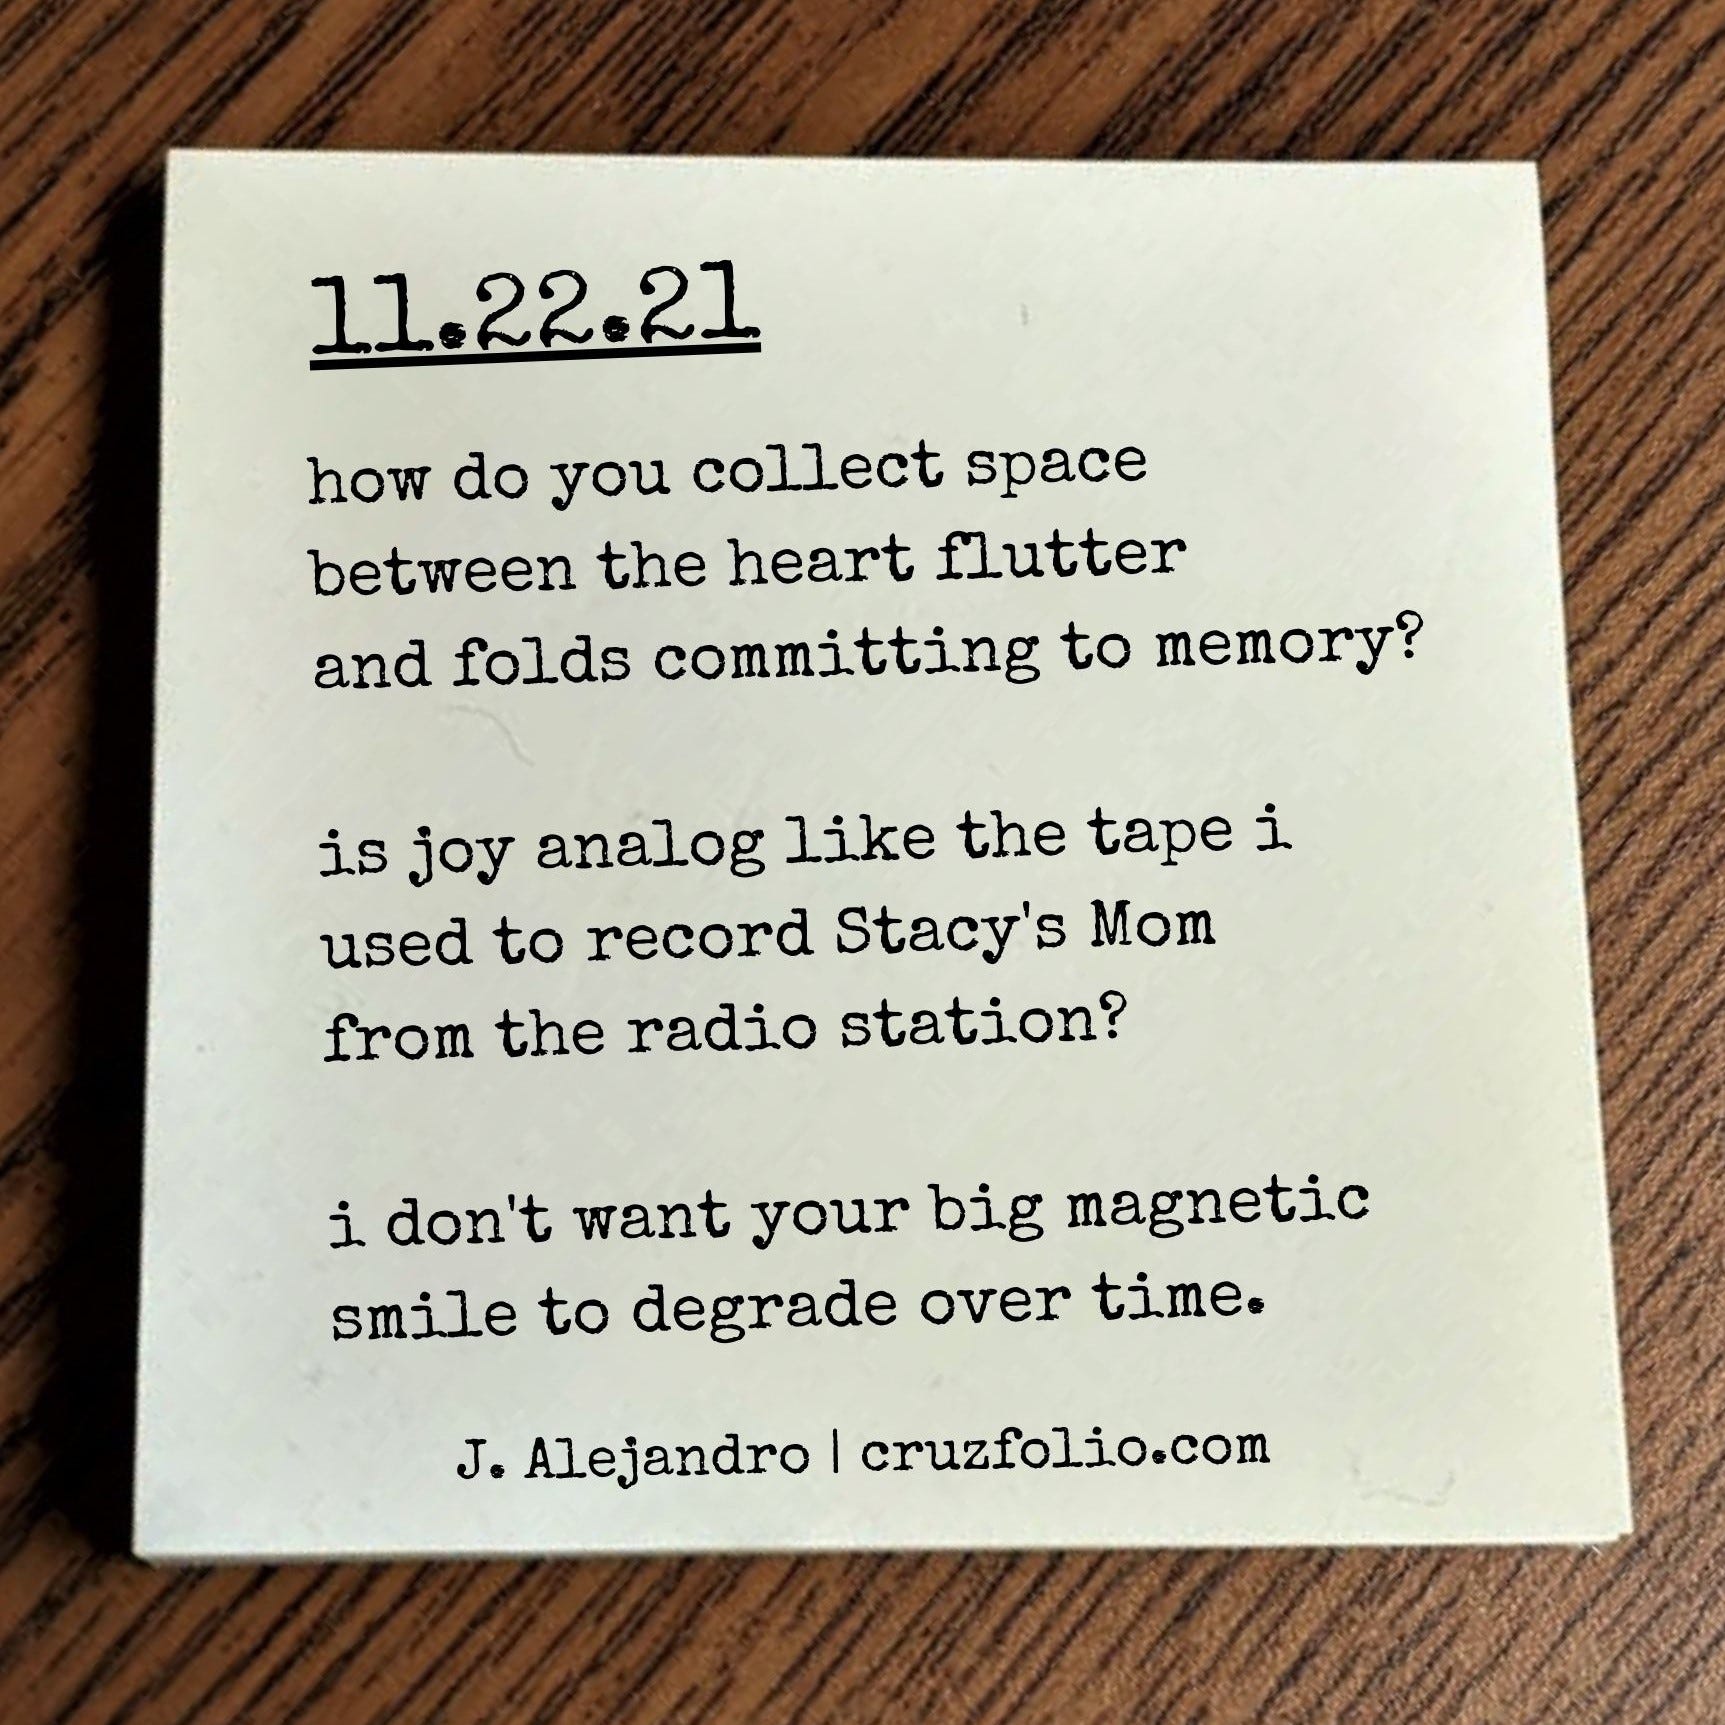 11.22.21
how do you collect space
between the heart flutter
and folds committing to memory?
is joy analog like the tape i
used to record Stacy's Mom
from the radio station?
i don't want your big magnetic
smile to degrade over time.
J. Alejandro | cruzfolio.com